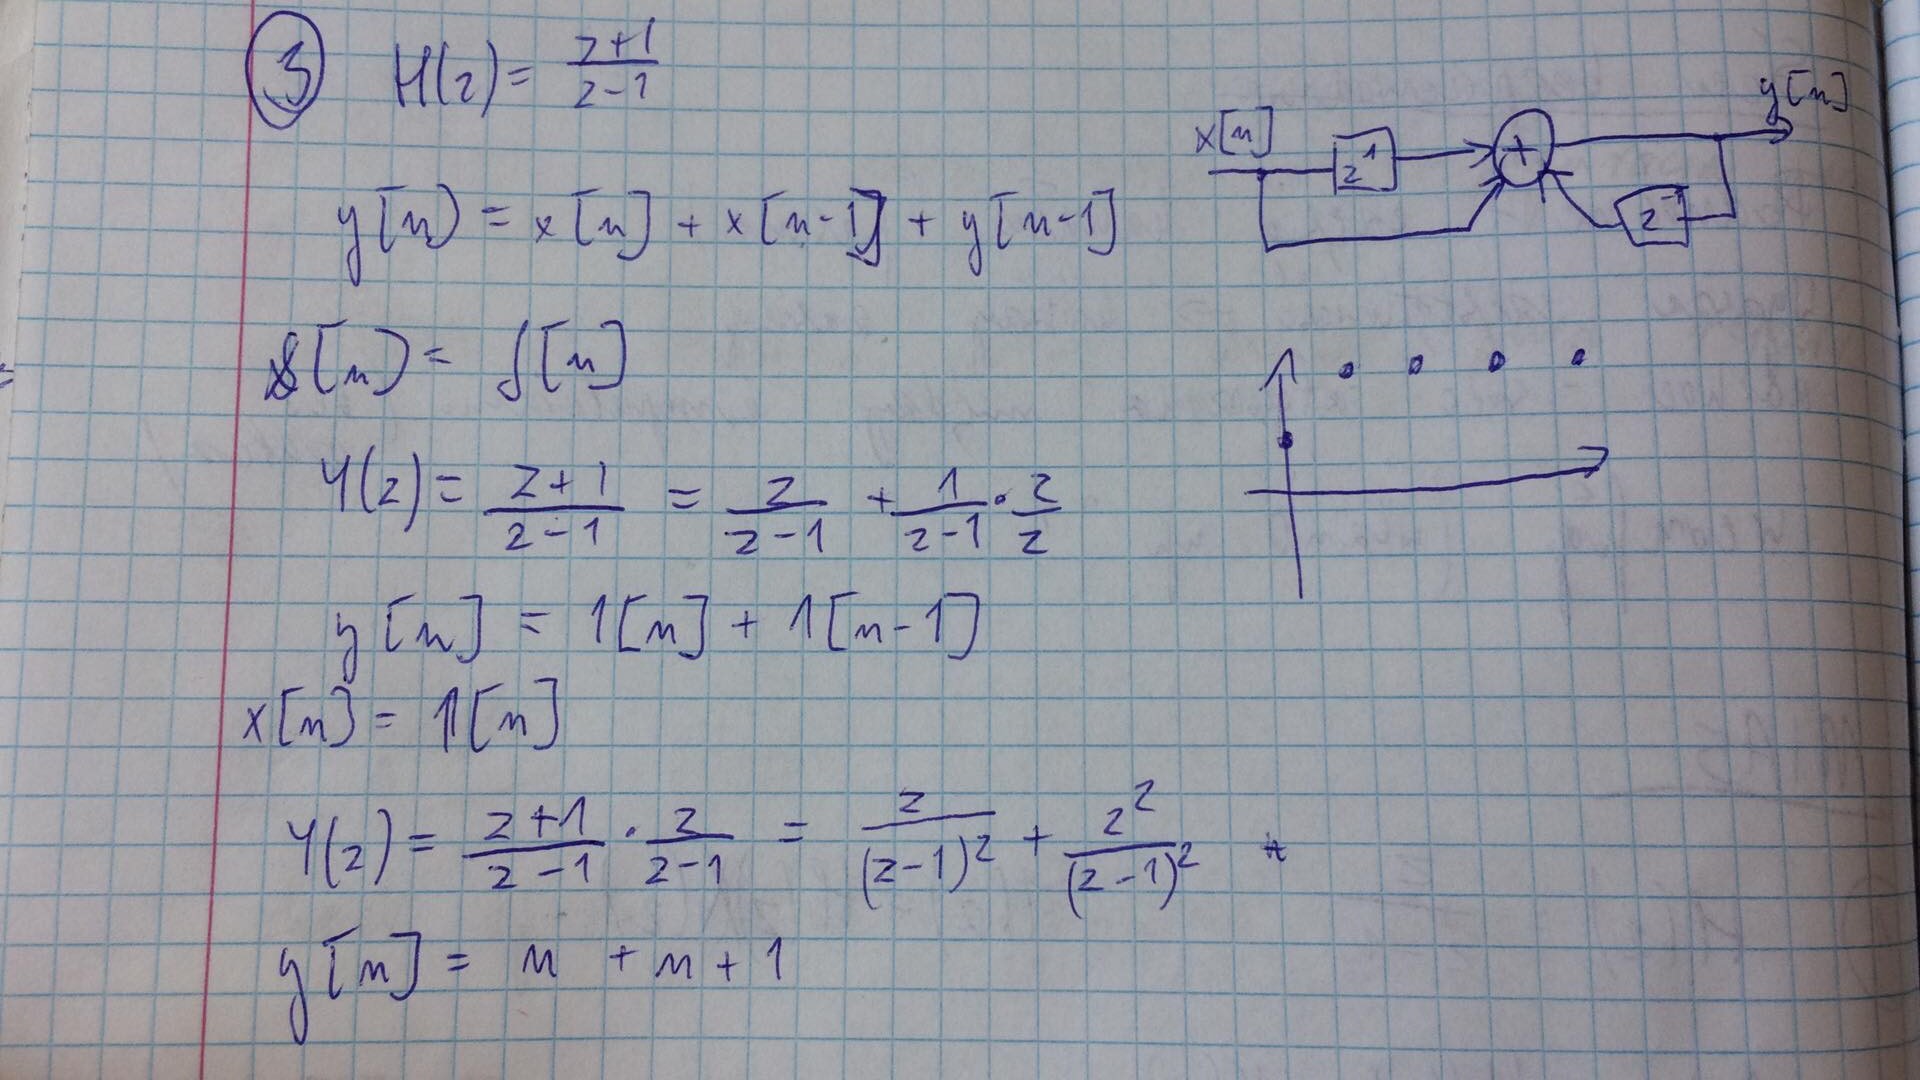 3 H(z) = \frac{z+1}{z-1}
x[n] z^1 + z^{-1} y[n]
y[n] = x[n] + x[n-1] + y[n-1]
[n] = δ[n]
Y(z) = \frac{z+1}{z-1} = \frac{z}{z-1} + \frac{1}{z-1} · \frac{z}{z}
y[n] = 1[n] + 1[n-1]
x[n] = 1[n]
Y(z) = \frac{z+1}{z-1} · \frac{z}{z-1} = \frac{z}{(z-1)^2} + \frac{z^2}{(z-1)^2}
y[n] = n + n + 1